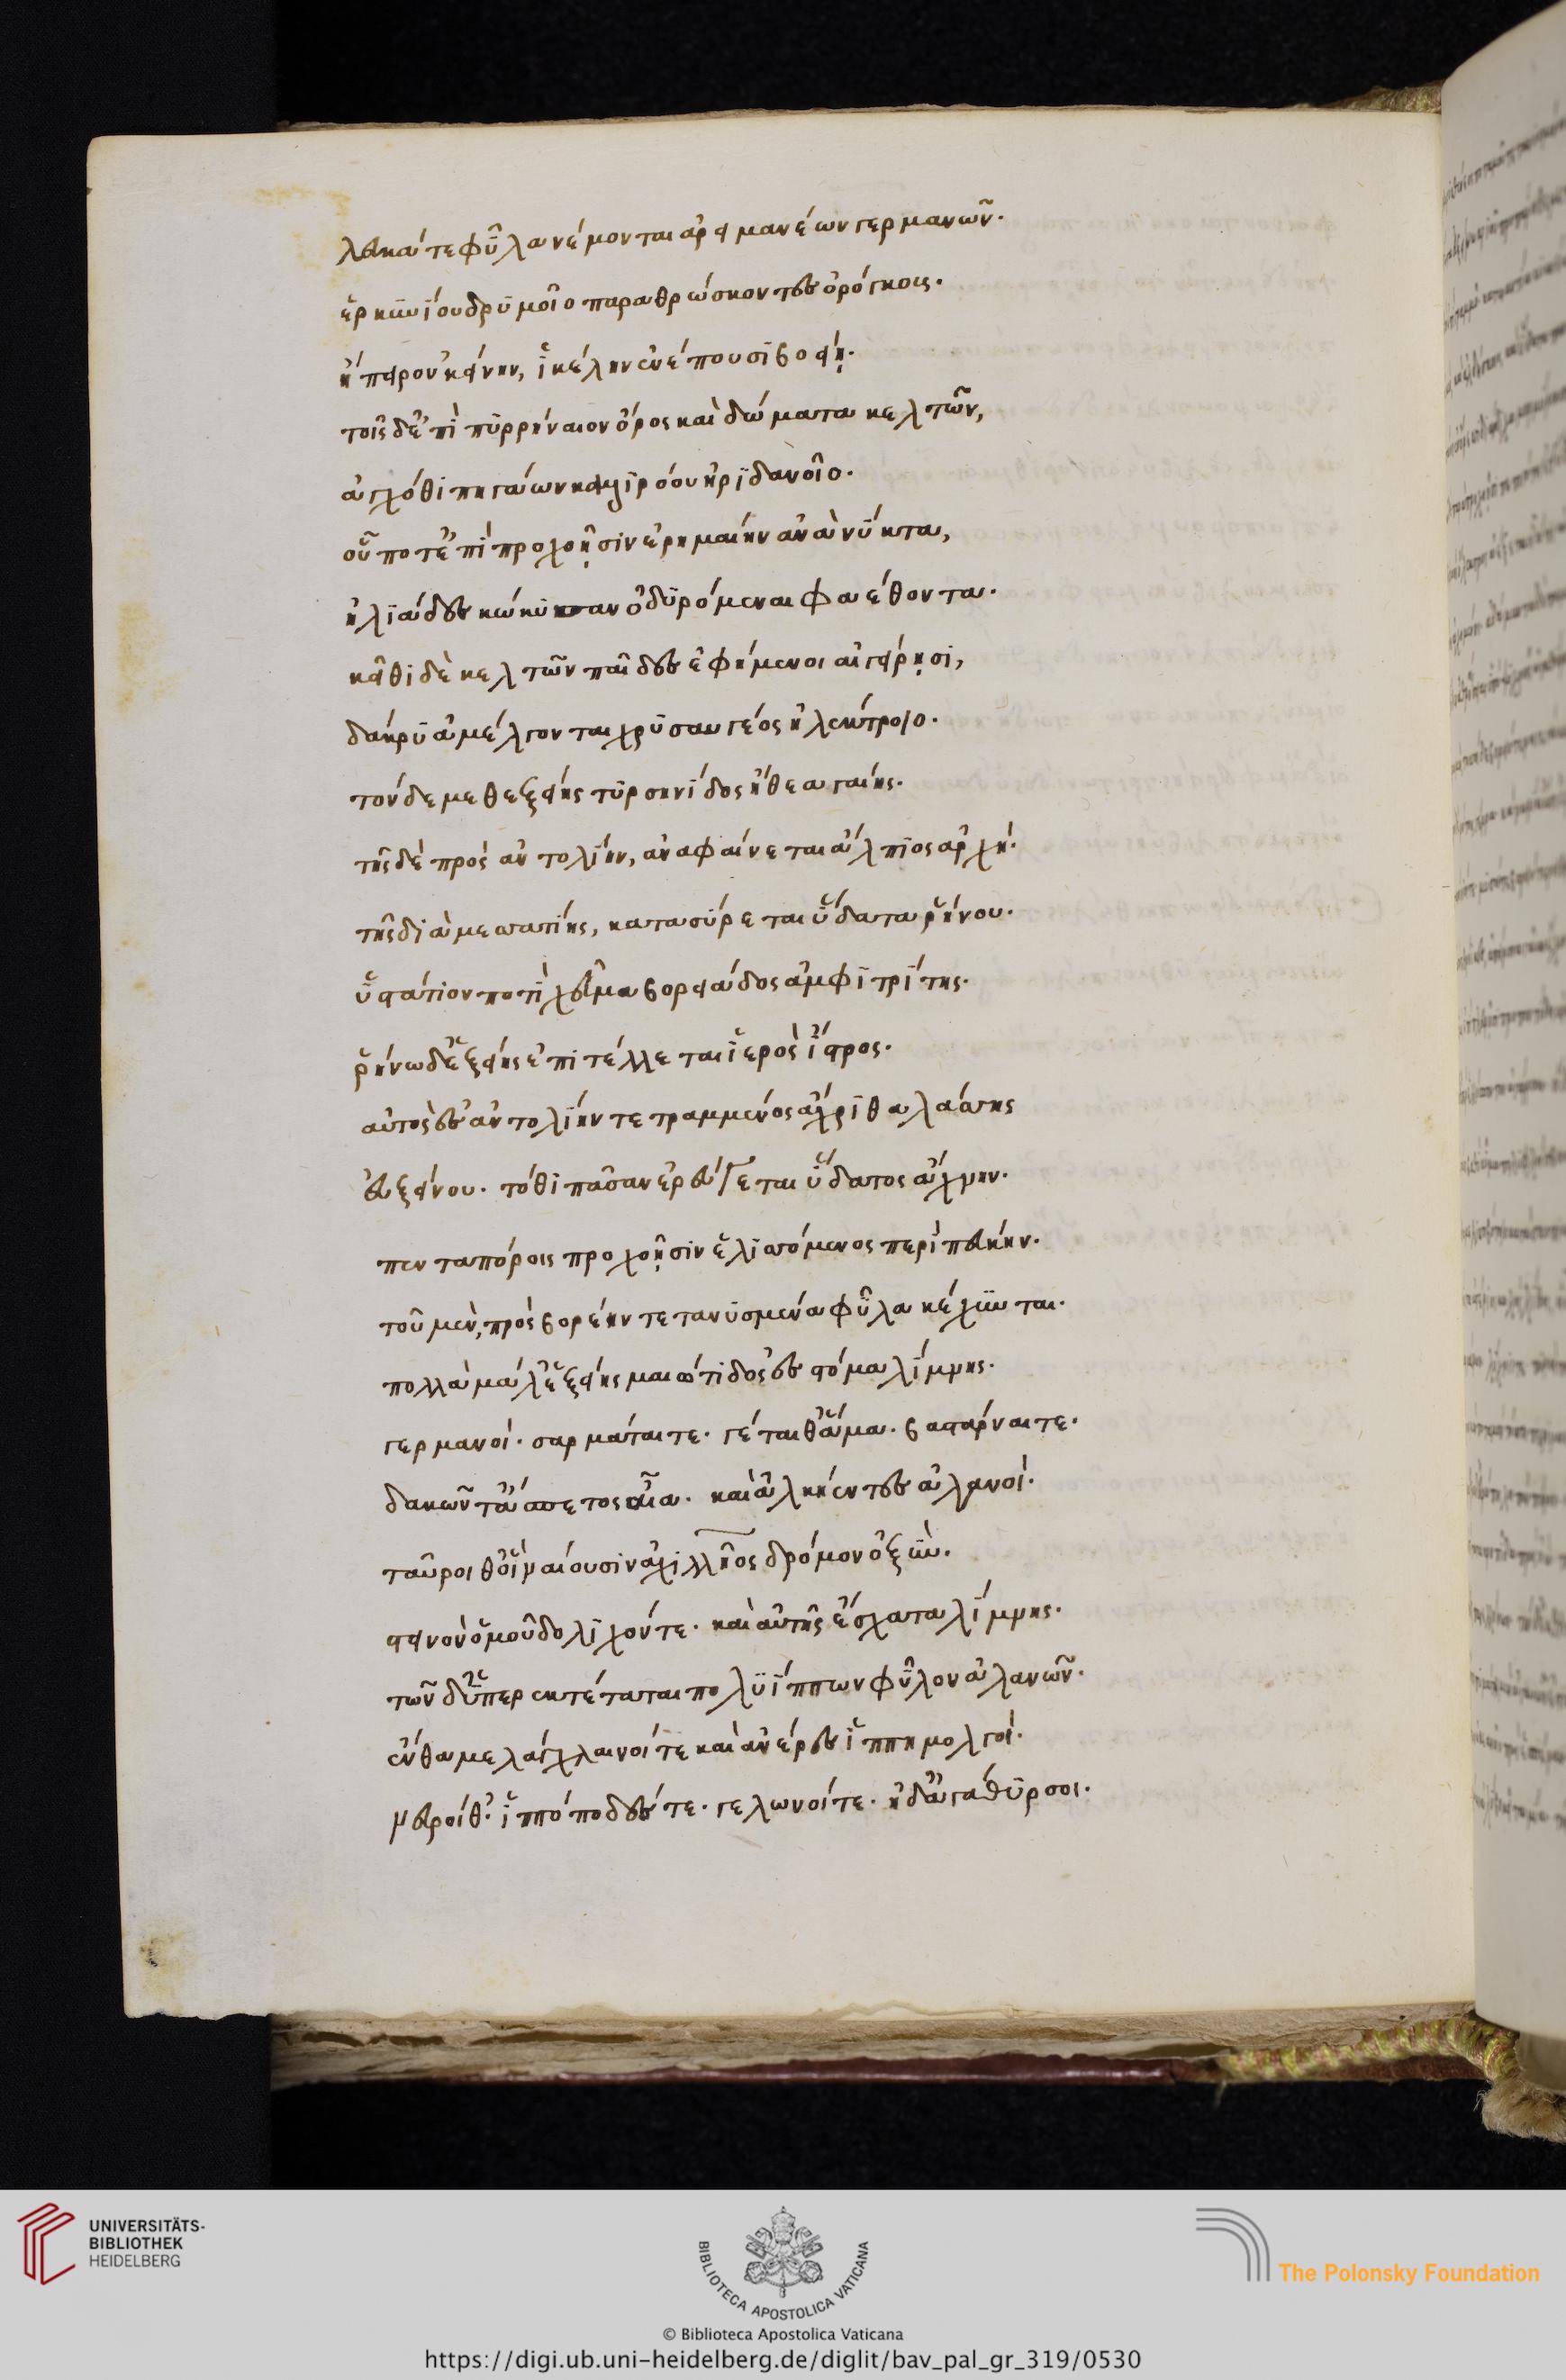 λευκά τε φῦλα νέμονται ἀρειμανέων γερμανῶν·
ἑρκυνίου δρυμοῖο παραθρώσκοντες ὀρόγκοις·
ἤπειρον κείνην, ἰκέλην ἐνέπουσι βοείῃ·
τοῖς δ' ἐπὶ πυρρήναιον ὄρος καὶ δώματα κελτῶν,
ἀγχόθι πηγάων καλλιρόου ἠριδανοῖο·
οὗ ποτ' ἐπὶ προχοῇσιν ἐρημαίην ἀνὰ νύκτα,
ἡλιάδες κώκυσαν ὀδυρόμεναι φαέθοντα·
κεῖθι δὲ κελτῶν παῖδες ἐφήμενοι αἰγείρῃσι,
δάκρυ ἀμέλγονται χρυσαυγέος ἠλέκτροιο·
τὸν δὲ μεθ' ἑξείης τυρσηνίδος ἤθεα γαίης·
τῆς δὲ πρὸς ἀντολίην, ἀναφαίνεται ἄλπιος ἀρχή·
τῆς διὰ μεσσατίης, κατασύρεται ὕδατα ῥήνου·
ὑστάτιον ποτὶ χεῦμα βορειάδος ἀμφιτρίτης·
ῥήνω δ' ἑξείης ἐπιτέλλεται ἱερὸς ἴστρος·
αὐτὸς ἐς ἀντολίην τετραμμένος ἄχρι θαλάσσης
εὐξείνου· τόθι πᾶσαν ἐρεύγεται ὕδατος ἄχμην·
πενταπόροις προχοῇσιν ἑλισσόμενος περὶ πεύκην·
τοῦ μὲν, πρὸς βορέην τετανυσμένα φῦλα κέχυνται·
πολλὰ μάλ' ἑξείης μαιώτιδος ἐς στόμα λίμνης·
γερμανοί· σαρμάται τε· γέται θ' ἅμα· βαστάρναι τε·
δακῶν τ' ἄσπετος αἶα· καὶ ἀλκήεντες ἀλανοί·
ταῦροι θ' οἳ ναίουσιν ἀχιλλῆος δρόμον ὀξύν·
στεινὸν ὁμοῦ δολιχόν τε· καὶ αὐτῆς ἔσχατα λίμνης·
τῶν δ' ὕπερ ἐκτέταται πολυΐππων φῦλον ἀλανῶν·
ἔνθα μελάγχλαινοί τε καὶ ἀνέρες ἱππημολγοί·
νευροί θ' ἱππόποδές τε· γελωνοί τε· ἠδ' ἀγάθυρσοι·
UNIVERSITÄTS-
BIBLIOTHEK
HEIDELBERG
BIBLIOTECA APOSTOLICA VATICANA
The Polonsky Foundation
© Biblioteca Apostolica Vaticana
https://digi.ub.uni-heidelberg.de/diglit/bav_pal_gr_319/0530